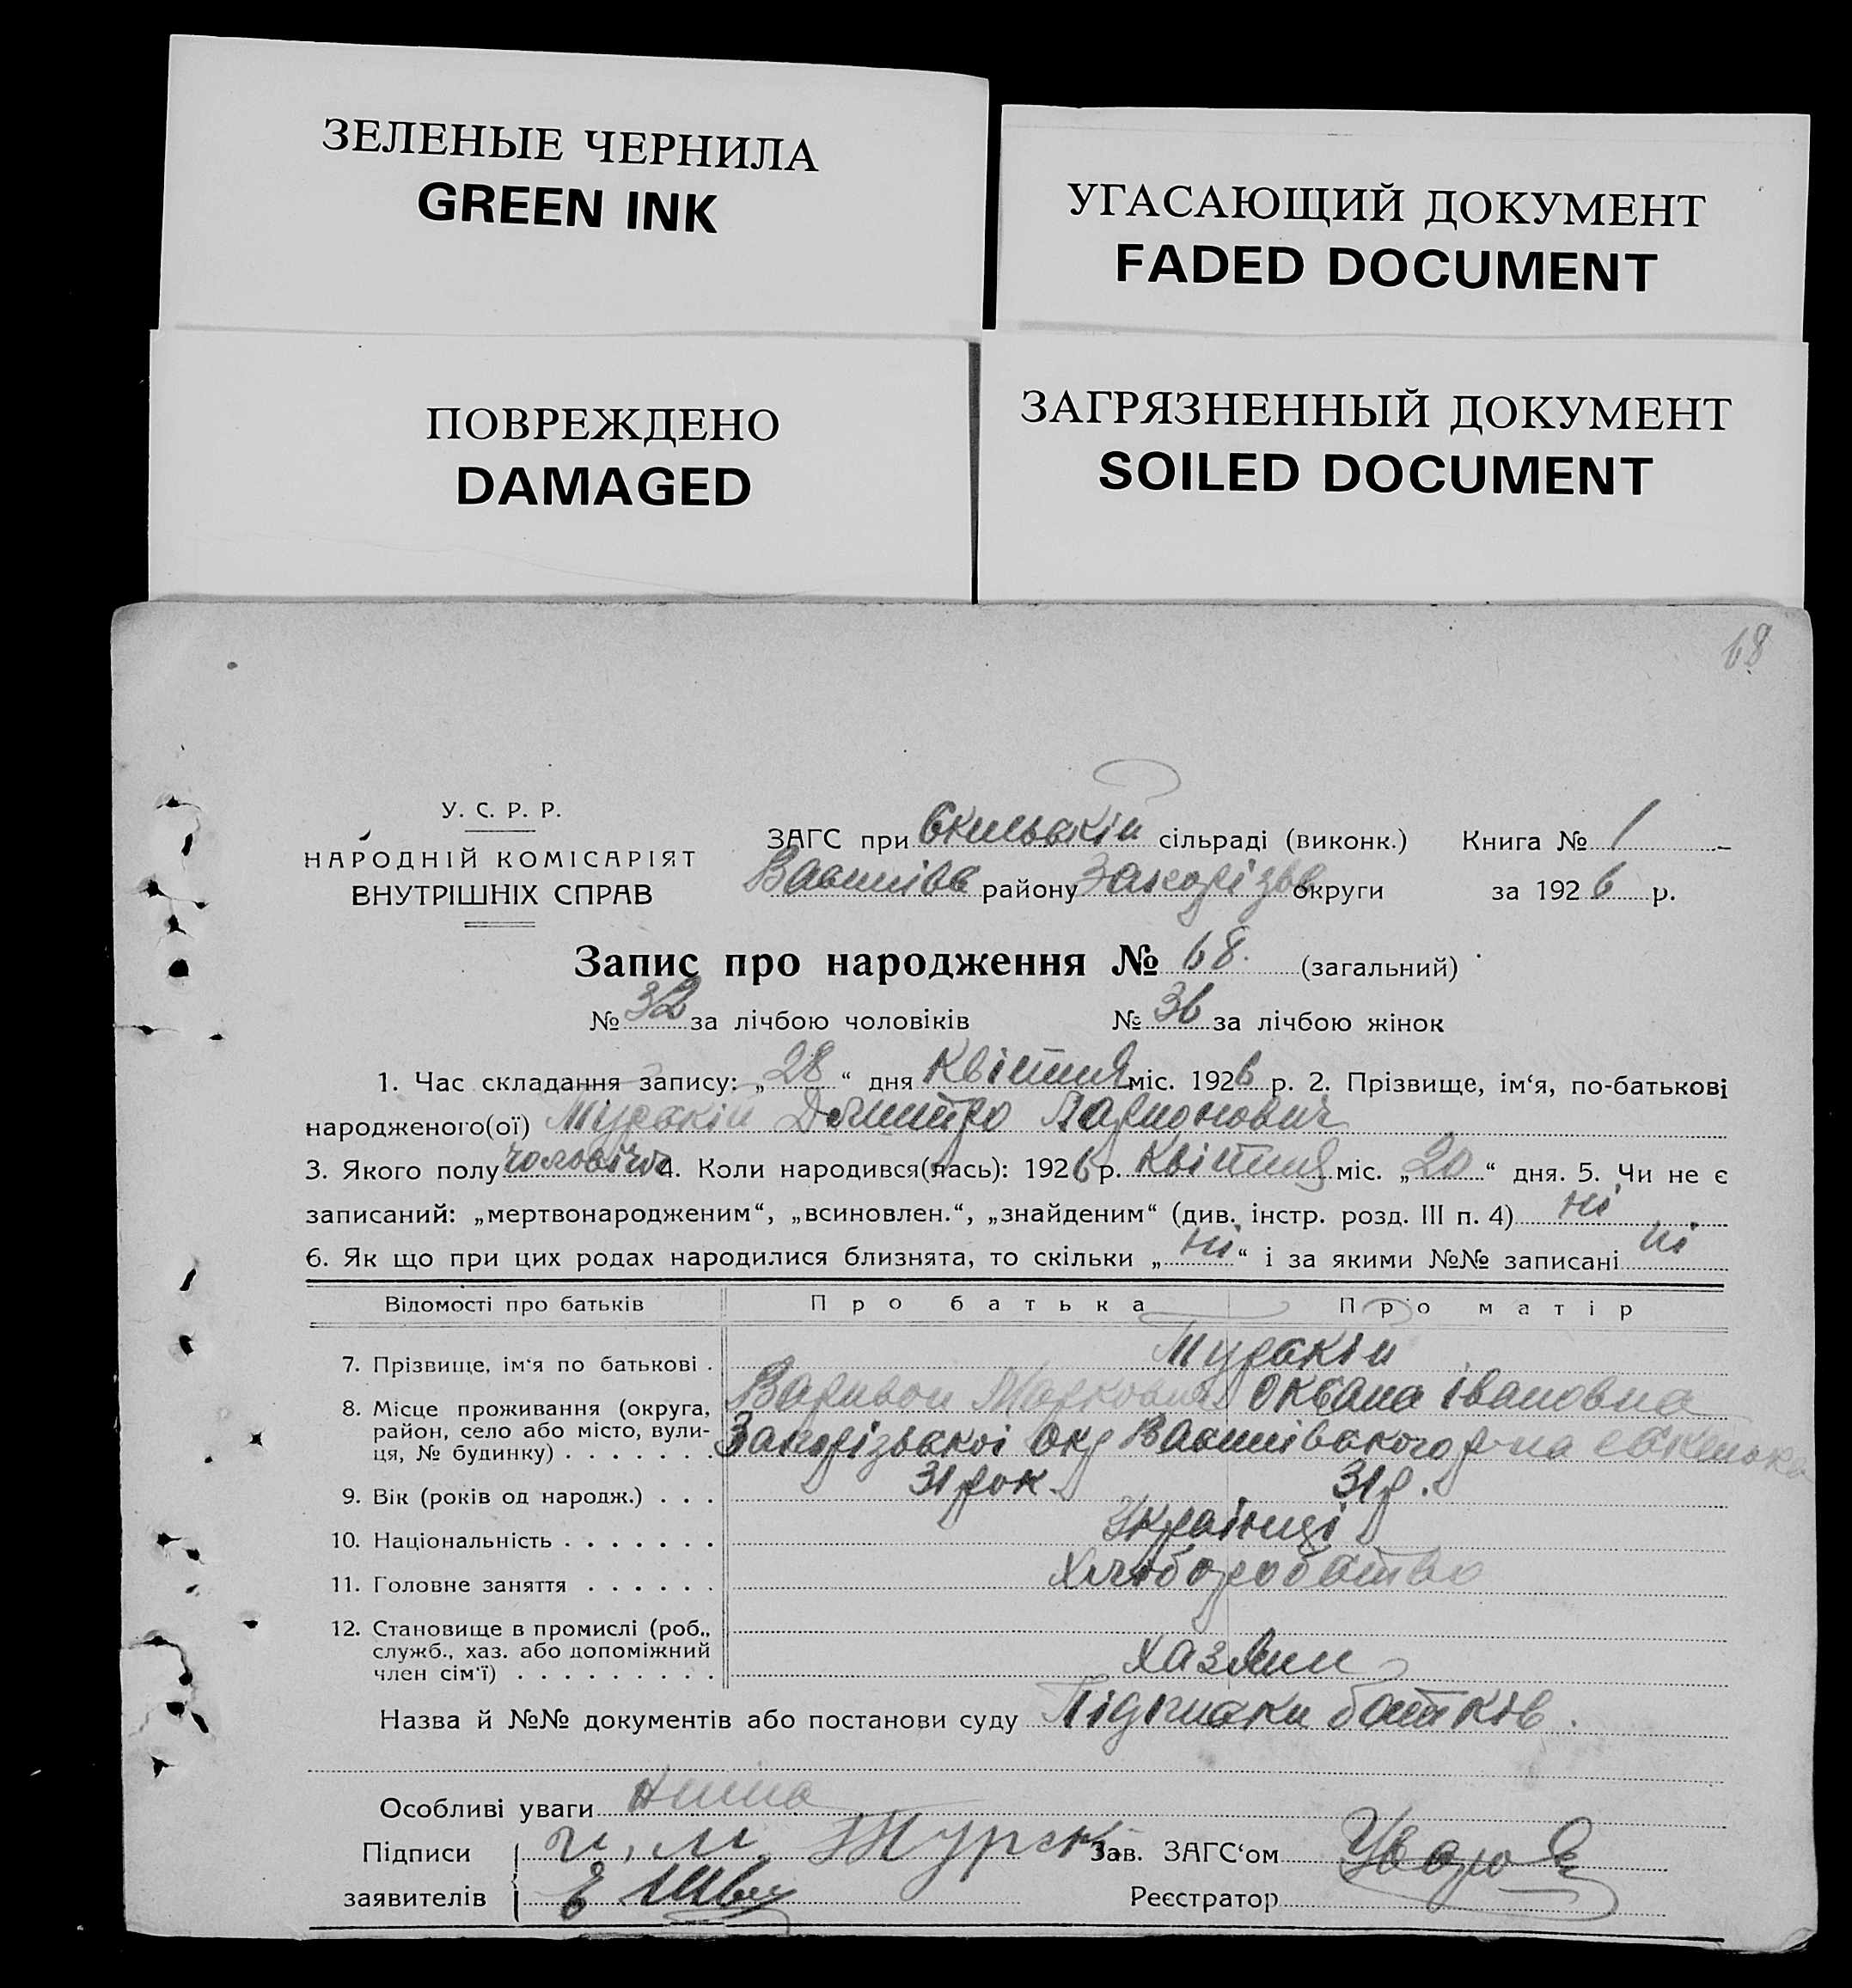 ЗЕЛЕНЫЕ ЧЕРНИЛА
GREEN INK
УГАСАЮЩИЙ ДОКУМЕНТ
FADED DOCUMENT
ПОВРЕЖДЕНО
DAMAGED
ЗАГРЯЗНЕННЫЙ ДОКУМЕНТ
SOILED DOCUMENT
68
У. С. Р. Р.
НАРОДНІЙ КОМІСАРІЯТ
ВНУТРІШНІХ СПРАВ
ЗАГС при сільраді (виконк.) Книга № 1
району округи за 1926 р.
Запис про народження № 68. (загальний)
№ 32 за лічбою чоловіків № 36 за лічбою жінок
1. Час складання запису: „28“ дня Квітня міс. 1926 р. 2. Прізвище, ім‘я, по-батькові
народженого(ої) Дмитро
3. Якого полу 4. Коли народився(лась): 1926 р. Квітня міс. „20“ дня. 5. Чи не є
записаний: „мертвонародженим“, „всиновлен.“, „знайденим“ (див. інстр. розд. III п. 4) ні
6. Як що при цих родах народилися близнята, то скільки „ні“ і за якими №№ записані ні
Відомості про батьків Про батька Про матір
7. Прізвище, ім‘я по батькові .
Оксана Івановна
8. Місце проживання (округа,
район, село або місто, вули-
ця, № будинку) . . . . . . . Запорізькоі Окр
9. Вік (років од народж.) . . . 31 рок 31 р.
10. Національність . . . . . . . Українці
11. Головне заняття . . . . . . Хліборобство
12. Становище в промислі (роб.,
служб., хаз. або допоміжний
член сім‘ї) . . . . . . . . . Хазяин
Назва й №№ документів або постанови суду батьків.
Особливі уваги
Підписи
заявителів
Зав. ЗАГС‘ом
Реєстратор